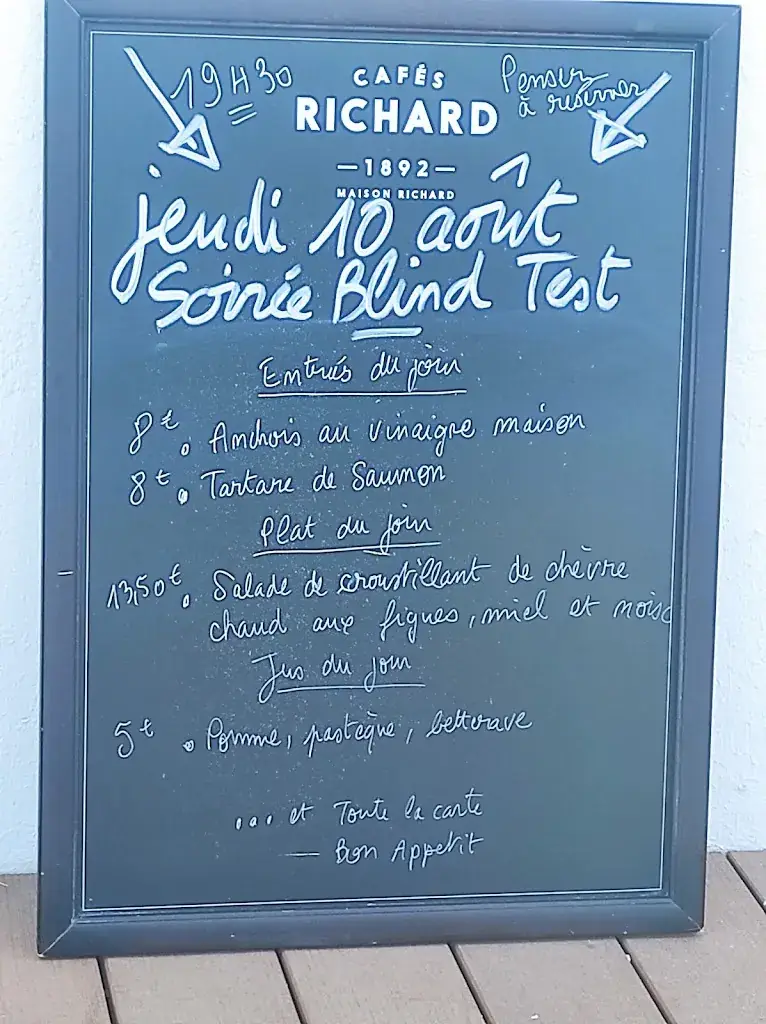 19H30
Pensez
à réserver
CAFÉS
RICHARD
—1892—
MAISON RICHARD
jeudi 10 août
Soirée Blind Test
Entrées du jour
8€ • Anchois au vinaigre maison
8€ • Tartare de Saumon
Plat du jour
13,50€ • Salade de croustillant de chèvre
chaud aux figues, miel et noisc
Jus du jour
5€ • Pomme, pastèque, betterave
... et Toute la carte
— Bon Appetit